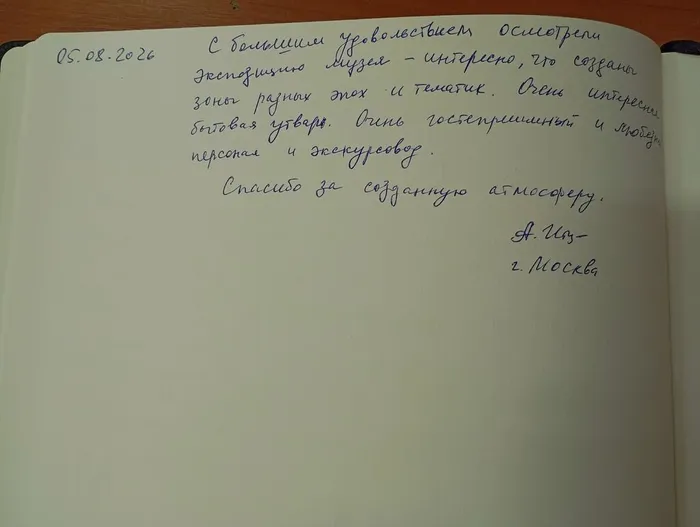 05.08.2026 С большим удовольствием осмотрели
экспозицию музея – интересно, что созданы
зоны разных эпох и тематик. Очень интересна
бытовая утварь. Очень гостеприимный и любезный
персонал и экскурсовод.
Спасибо за созданную атмосферу.
А.
г. Москва